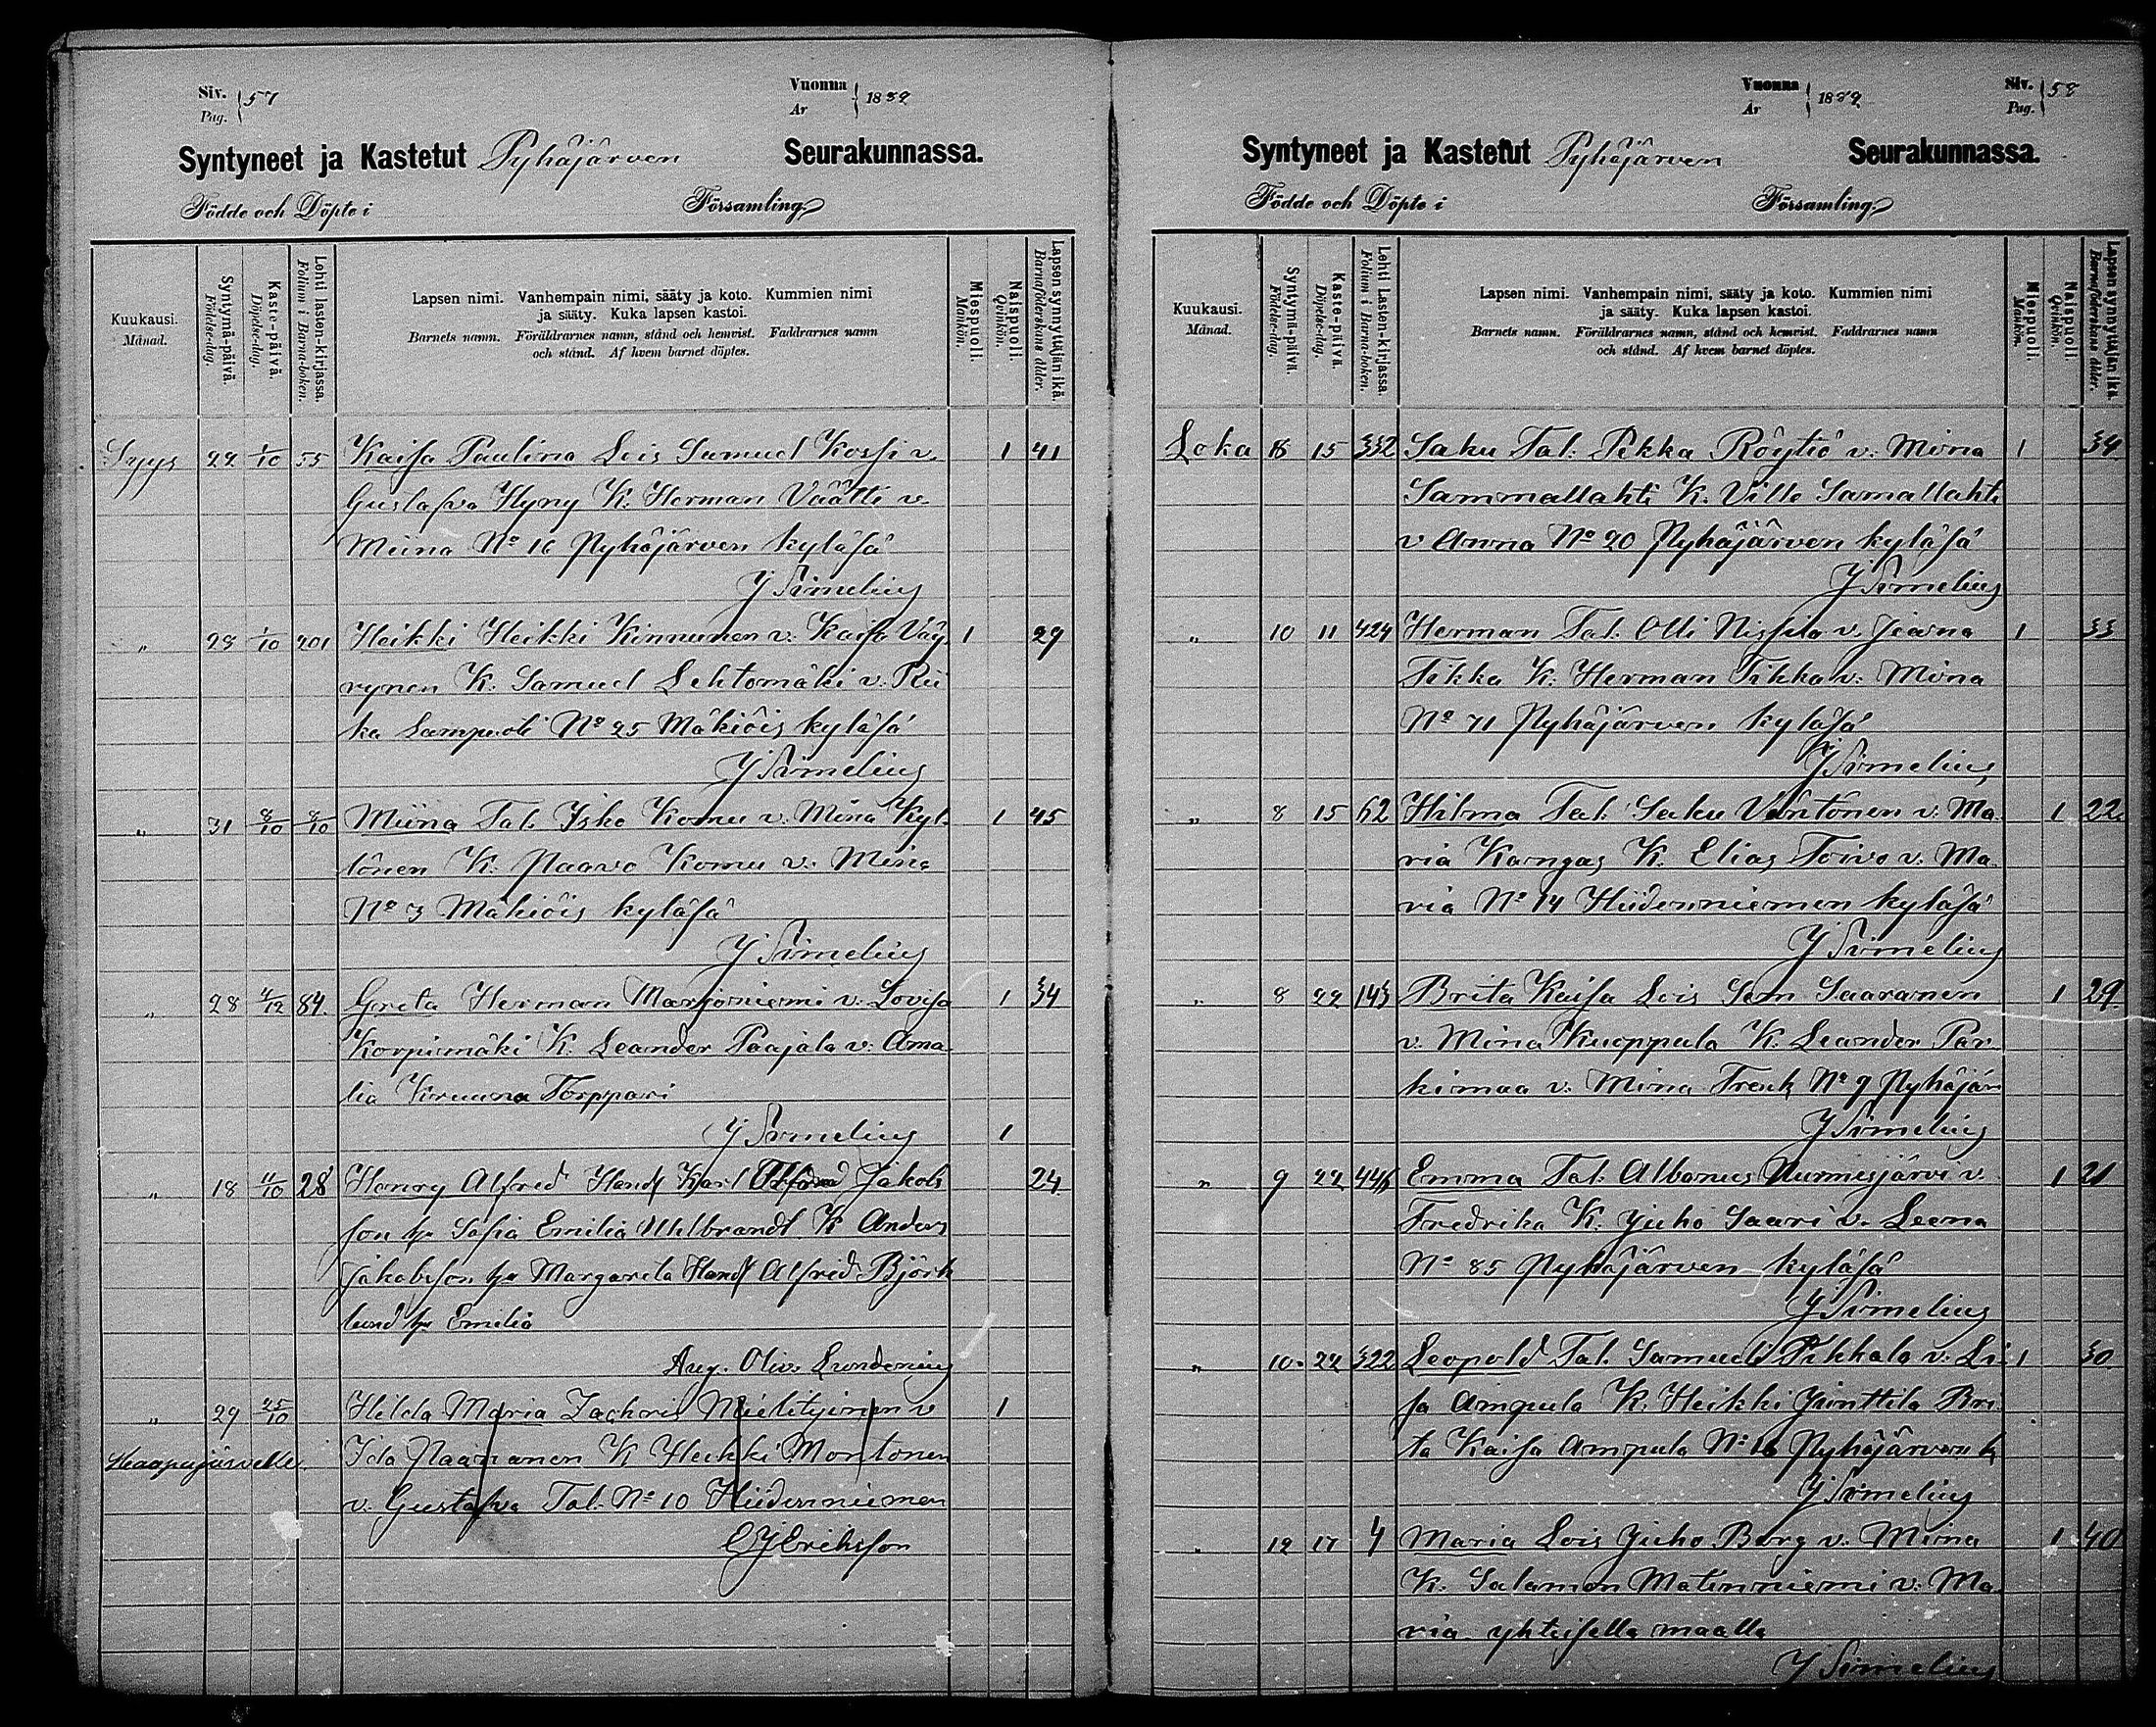 Siv. Pag. } 57
Vuonna Ar } 1889
Syntyneet ja Kastetut Pyhäjärven Seurakunnassa.
Födde och Döpte i Församling.
Kuukausi. Månad.
Syntymä-päivä. Födelse-dag.
Kaste-päivä. Döpelse-dag.
Lehti lasten-kirjassa. Folium i Barna-boken.
Lapsen nimi. Vanhempain nimi, sääty ja koto. Kummien nimi
ja sääty. Kuka lapsen kastoi.
Barnets namn. Föräldrarnes namn, stånd och hemvist. Faddrarnes namn
och stånd. Af hvem barnet döptes.
Miespuoli. Mankön.
Naispuoli. Qvinkön.
Lapsen synnyttäjän ikä. Barnaföderskans ålder.
Syys 22 1/10 55 Kaisa Paulina Lois Samuel Kossi v. 1 41
Gustafva Hyny K: Herman Väätti v.
Miina No 16 Pyhäjärven kyläsä
J Simelius
" 28 1/10 201 Heikki Heikki Kinnunen v: Kaisa Väy 1 29
rynen K: Samuel Lehtomäki v: Rii
ka No 25 Mäkiöis kyläsä
J Simelius
" 31 8/10 8/10 Miina Tal. Isko Komu v: Mina Kyl 1 45
lönen K: Paavo Komu v: Mina
No 3 Mäkiöis kyläsä
J Simelius
" 28 4/12 84. Greta Herman Marjoniemi v: Lovisa 1 34
Korpimäki K: Leander Paajala v: Ama
lia Kruuna Torppari
J Simelius 1
" 18 11/10 28 Henry Alfred Handl Karl Alfred Jakobs 24
son hu Sofia Emilia Uhlbrandt K Anders
Jakobsson hu Margareta Handl Alfred Björk
lund hu Emilia
Aug. Oliv. Lundenius
" 29 25/10 Hilda Maria Zachris Mielityinen v 1
Haapajärvelle. Ida Paananen K Heikki Montonen
v. Gustafva Tal. No 10 Hiidenniemen
E J Eriksson
Vuonna Ar } 1889
Siv. Pag. } 58
Syntyneet ja Kastetut Pyhäjärven Seurakunnassa.
Födde och Döpte i Församling.
Kuukausi. Månad.
Syntymä-päivä. Födelse-dag.
Kaste-päivä. Döpelse-dag.
Lehti Lasten-kirjassa. Folium i Barna-boken.
Lapsen nimi. Vanhempain nimi, sääty ja koto. Kummien nimi
ja sääty. Kuka lapsen kastoi.
Barnets namn. Föräldrarnes namn, stånd och hemvist. Faddrarnes namn
och stånd. Af hvem barnet döptes.
Miespuoli. Mankön.
Naispuoli. Qvinkön.
Lapsen synnyttäjän ikä. Barnaföderskans ålder.
Loka 15 332 Saku Tal: Pekka Röytiö v: Miina 1 34.
Sammallahti K: Ville Samallahti
v Anna No 20 Pyhäjärven kyläsä
J Simelius
" 10 11 424 Herman Tal: Olli Nissila v. Jeana 1 33
Tikka K: Herman Tikka v: Miina
No 71 Pyhäjärven kyläsä
J Simelius
" 8 15 62 Hilma Tal: Saku Väntönen v: Ma 1 22.
ria Kangas K: Elias Toivo v: Ma
ria No 14 Hiidenniemen kyläsä
J Simelius
" 8 22 143 Brita Kaisa Lois Sam Saaranen 1 29.
v: Mina Kuoppala K: Leander Par
kimaa v: Mina Frenk No 9 Pyhäjär
J Simelius
" 9 22 446 Emma Tal: Albanus Nurmesjärvi v. 1 21
Fredrika K: Juho Saari v. Leena
No 85 Pyhäjärven kyläsä
J Simelius
" 10. 22 322 Leopold Tal. Samuel Pikkala v: Li 1 30
sa Ampula K: Heikki Junttila Bri
ta Kaisa Ampula No 16 Pyhäjärven k
J Simelius
" 12 17 4 Maria Lois Juho Borg v: Miina 1 40
K: Salamon Matinniemi v: Ma
ria yhteisellä maalla
J Simelius